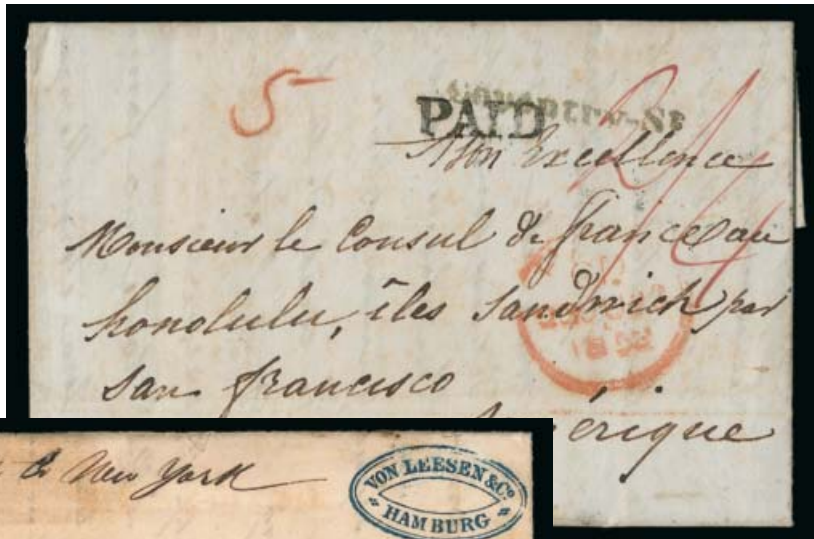 5
Coventry-St
PAID
2/4
A Son Excellence
Monsieur le Consul de france au
honolulu, îles Sandwich par
San francisco
érique
& New York
VON LEESEN & Co
HAMBURG